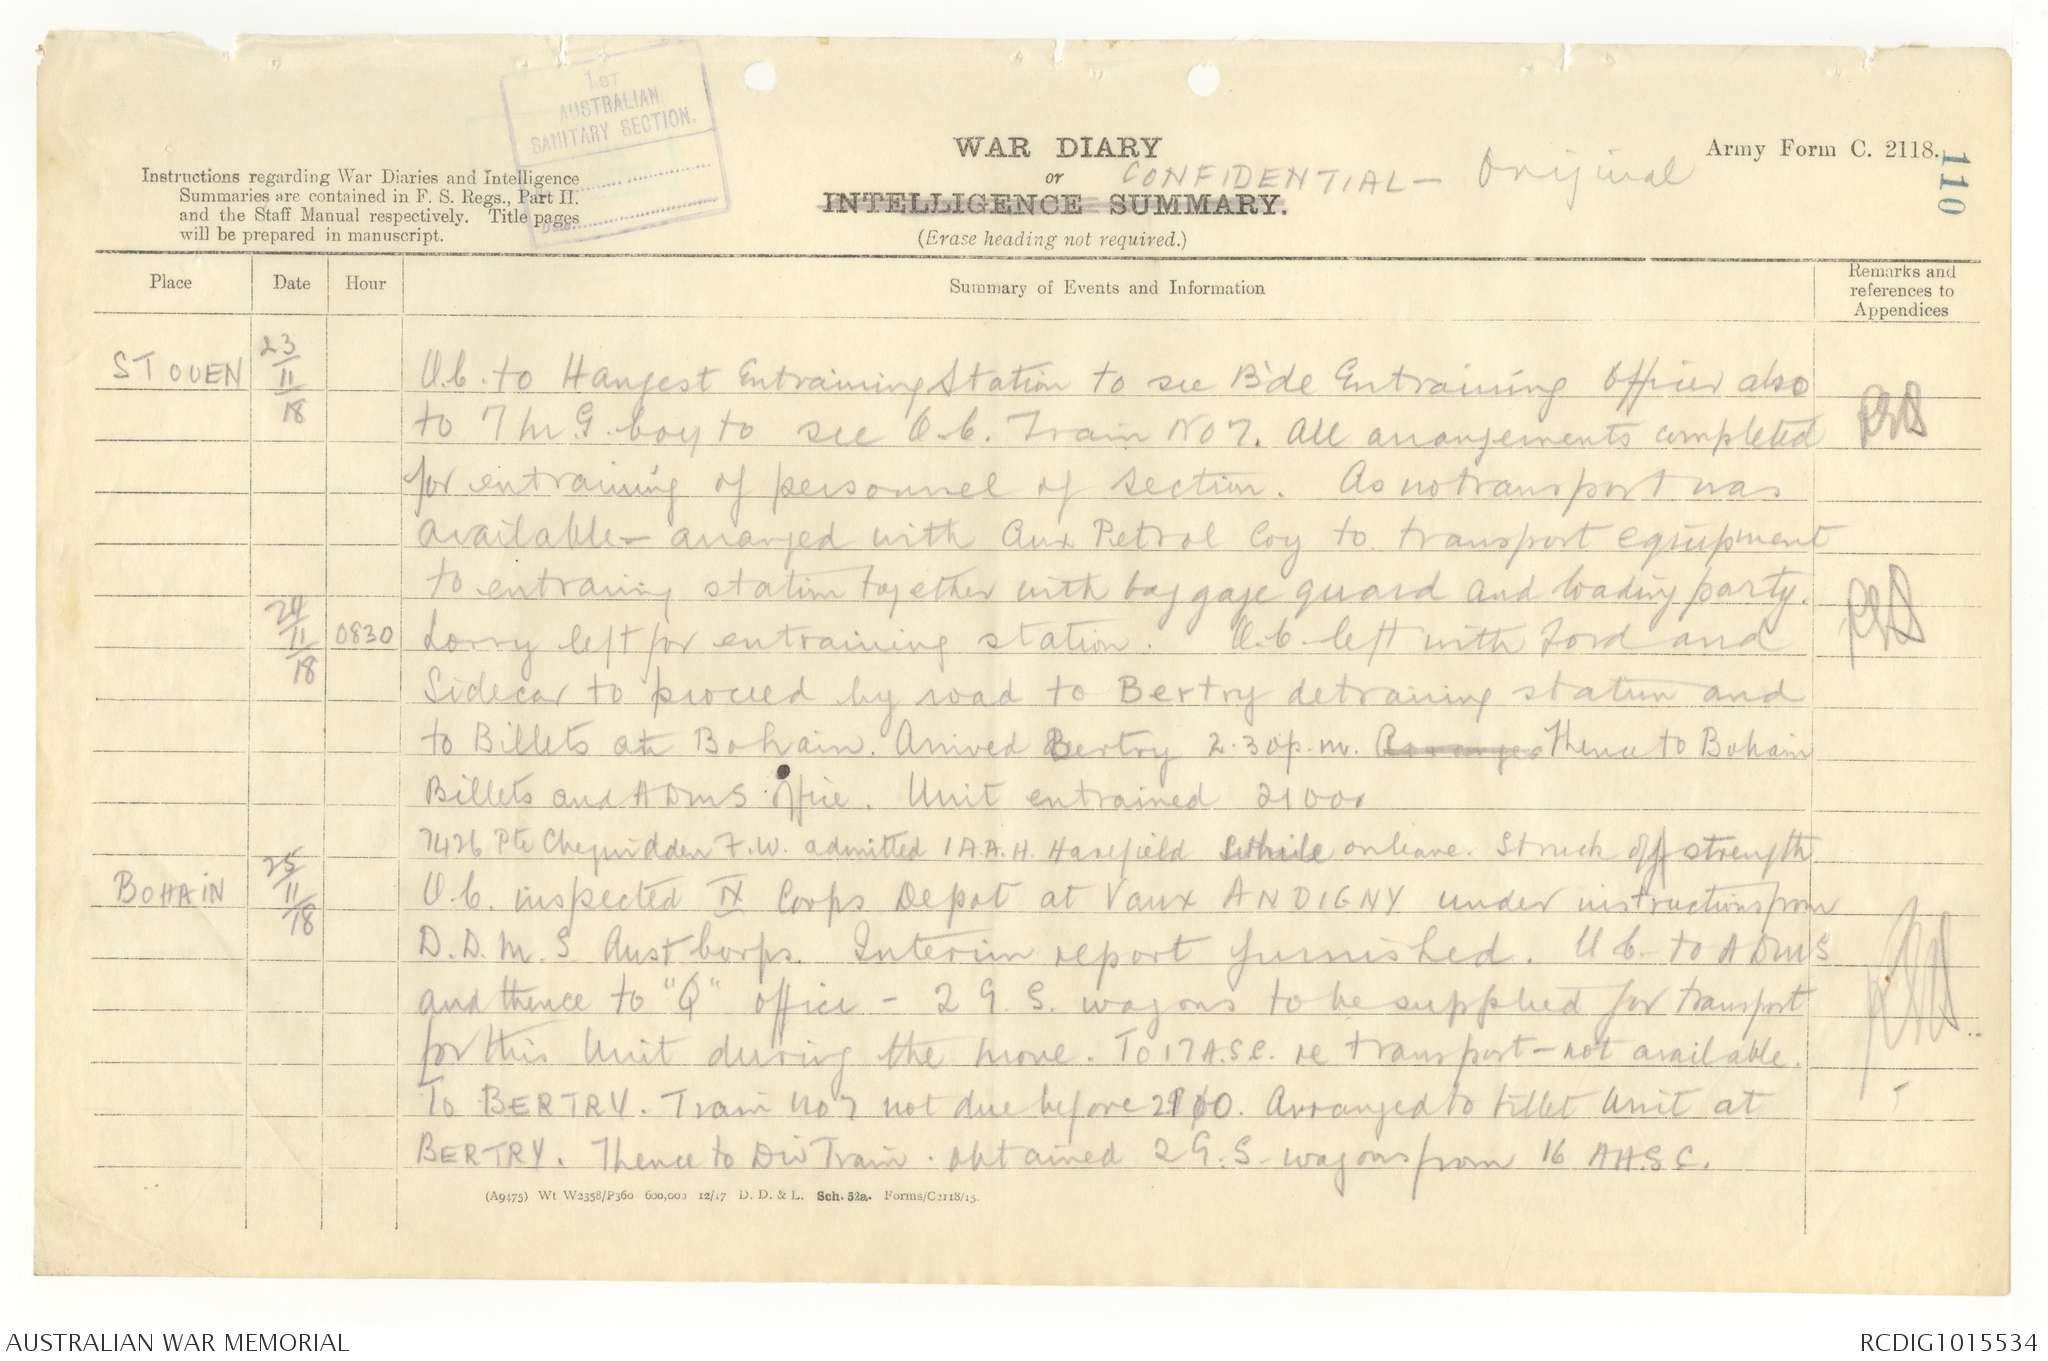 1ST
AUSTRALIAN
SANITARY SECTION.
Date
WAR DIARY
or
INTELLIGENCE SUMMARY.
(Erase heading not required.)
CONFIDENTIAL - Original
Army Form C. 2118.
110
Instructions regarding War Diaries and Intelligence
Summaries are contained in F. S. Regs., Part II.
and the Staff Manual respectively. Title pages
will be prepared in manuscript.
Place Date Hour Summary of Events and Information Remarks and references to Appendices
ST OUEN 23/11/18 O.C. to Hangest Entraining Station to see B'de Entraining Officer also
to 7 M.G. Coy to see O.C. Train No 7. All arrangements completed
for entraining of personnel of section. As no transport was
available - arranged with Aux Petrol Coy to transport equipment
to entraining station together with baggage guard and loading party.
24/11/18 0830 Lorry left for entraining station. O.C. left with Ford and
Sidecar to proceed by road to Bertry detraining station and
to Billets at Bohain. Arrived Bertry 2.30 p.m. Thence to Bohain
Billets and ADMS office. Unit entrained 21000
7426 Pte F.W. admitted 1 A.A.H. Harefield while on leave. Struck off strength
BOHAIN 25/11/18 O.C. inspected IX Corps Depot at Vaux ANDIGNY under instructions from
D.D.M.S Aust Corps. Interim report furnished. O.C. to ADMS
and thence to "Q" office - 2 G.S. wagons to be supplied for transport
for this Unit during the move. To 17 A.S.C. re transport - not available.
To BERTRY. Train No 7 not due before 2100. Arranged to billet Unit at
BERTRY. Thence to Div Train. obtained 2 G.S. wagons from 16 A.A.S.C.
(A9475) Wt W2358/P360 600,000 12/17 D. D. & L. Sch. 52a. Forms/C2118/15.
AUSTRALIAN WAR MEMORIAL
RCDIG1015534